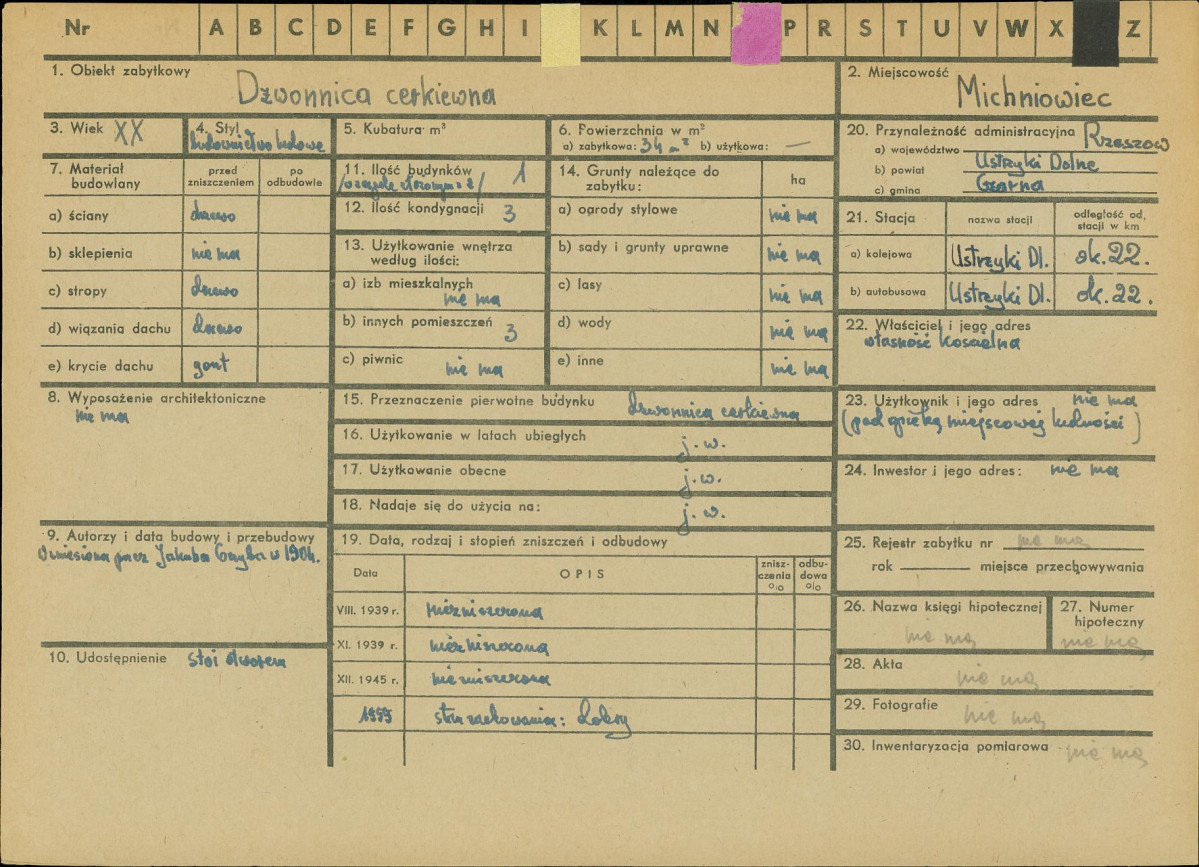 Nr A B C D E F G H I K L M N P R S T U V W X Z
1. Obiekt zabytkowy
Dzwonnica cerkiewna
2. Miejscowość
Michniowiec
3. Wiek XX
4. Styl
budownictwo ludowe
5. Kubatura m³
6. Powierzchnia w m²
a) zabytkowa: 34 m² b) użytkowa: —
7. Materiał budowlany
przed zniszczeniem
po odbudowie
a) ściany drewno
b) sklepienia nie ma
c) stropy drewno
d) wiązania dachu drewno
e) krycie dachu gont
8. Wyposażenie architektoniczne
nie ma
9. Autorzy i data budowy i przebudowy
Wzniesiona przez Jakuba w 1904.
10. Udostępnienie stoi otworem
11. Ilość budynków 1
12. Ilość kondygnacji 3
13. Użytkowanie wnętrza
według ilości:
a) izb mieszkalnych
nie ma
b) innych pomieszczeń 3
c) piwnic nie ma
14. Grunty należące do
zabytku:
ha
a) ogrody stylowe nie ma
b) sady i grunty uprawne nie ma
c) lasy nie ma
d) wody nie ma
e) inne nie ma
15. Przeznaczenie pierwotne budynku dzwonnica cerkiewna
16. Użytkowanie w latach ubiegłych j. w.
17. Użytkowanie obecne j. w.
18. Nadaje się do użycia na: j. w.
19. Data, rodzaj i stopień zniszczeń i odbudowy
Data
OPIS
znisz-
czenia
%
odbu-
dowa
%
VIII. 1939 r. niezniszczona
XI. 1939 r. niezniszczona
XII. 1945 r. niezniszczona
1959 stan zachowania: dobry
20. Przynależność administracyjna
a) województwo Rzeszow
b) powiat Ustrzyki Dolne
c) gmina Czarna
21. Stacja
nazwa stacji
odległość od
stacji w km
a) kolejowa Ustrzyki Dl. ok. 22.
b) autobusowa Ustrzyki Dl. ok. 22.
22. Właściciel i jego adres
własność kościelna
23. Użytkownik i jego adres nie ma
(pod opieką miejscowej ludności)
24. Inwestor i jego adres: nie ma
25. Rejestr zabytku nr nie ma
rok miejsce przechowywania
26. Nazwa księgi hipotecznej
nie ma
27. Numer
hipoteczny
nie ma
28. Akta
nie ma
29. Fotografie
nie ma
30. Inwentaryzacja pomiarowa nie ma